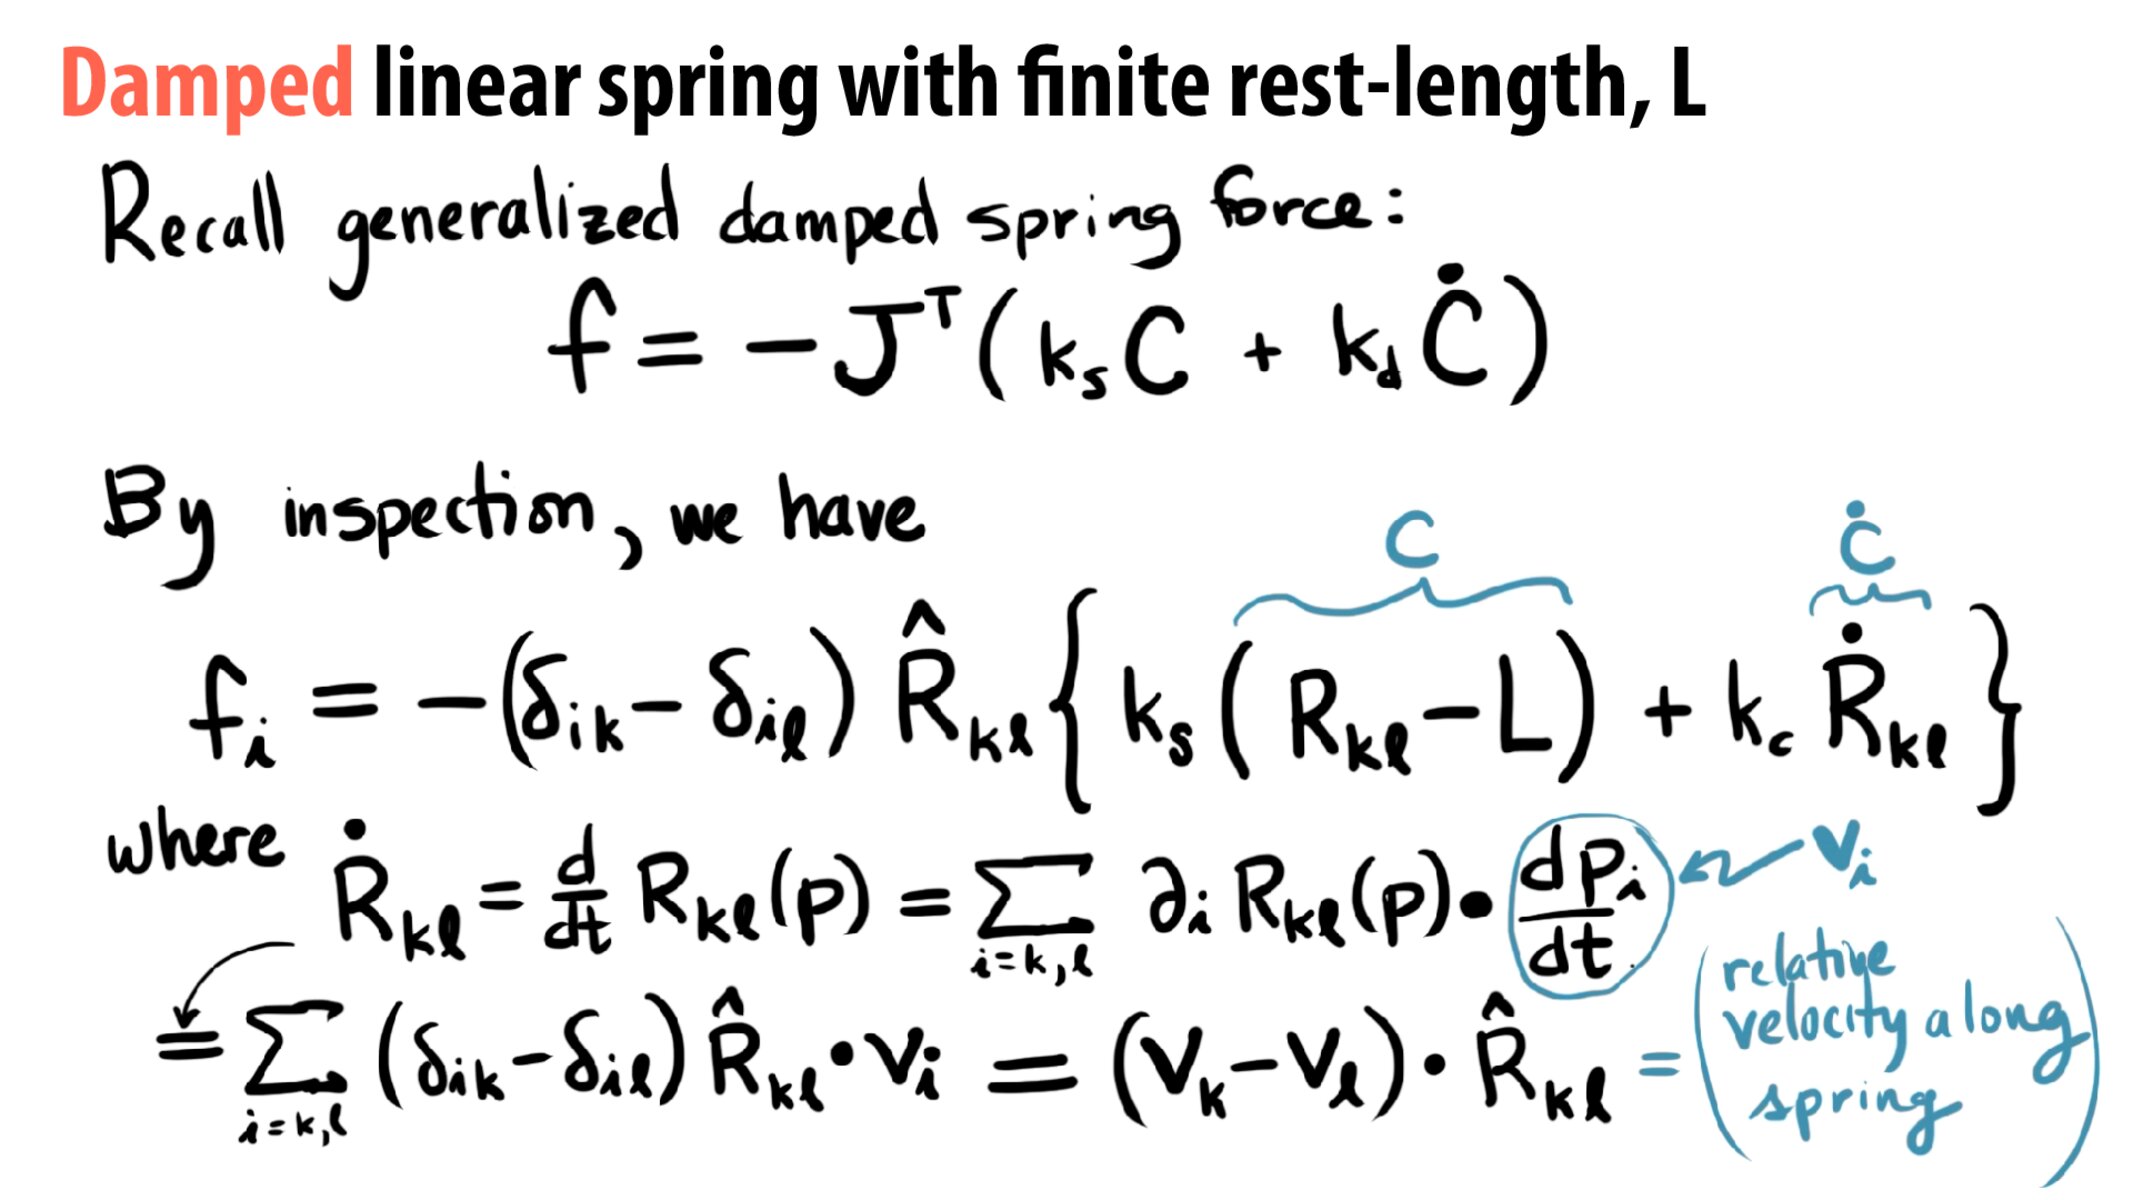 Damped linear spring with finite rest-length, L
Recall generalized damped spring force:
f = −Jᵀ(kₛC + k_d Ċ)
By inspection, we have
C Ċ
f_i = −(δ_ik − δ_il) R̂_kl { k_s (R_kl − L) + k_c Ṙ_kl }
where Ṙ_kl = d/dt R_kl(p) = Σ_{i=k,l} ∂_i R_kl(p) • dp_i/dt ← v_i
= Σ_{i=k,l} (δ_ik − δ_il) R̂_kl • v_i = (v_k − v_l) • R̂_kl = (relative velocity along spring)